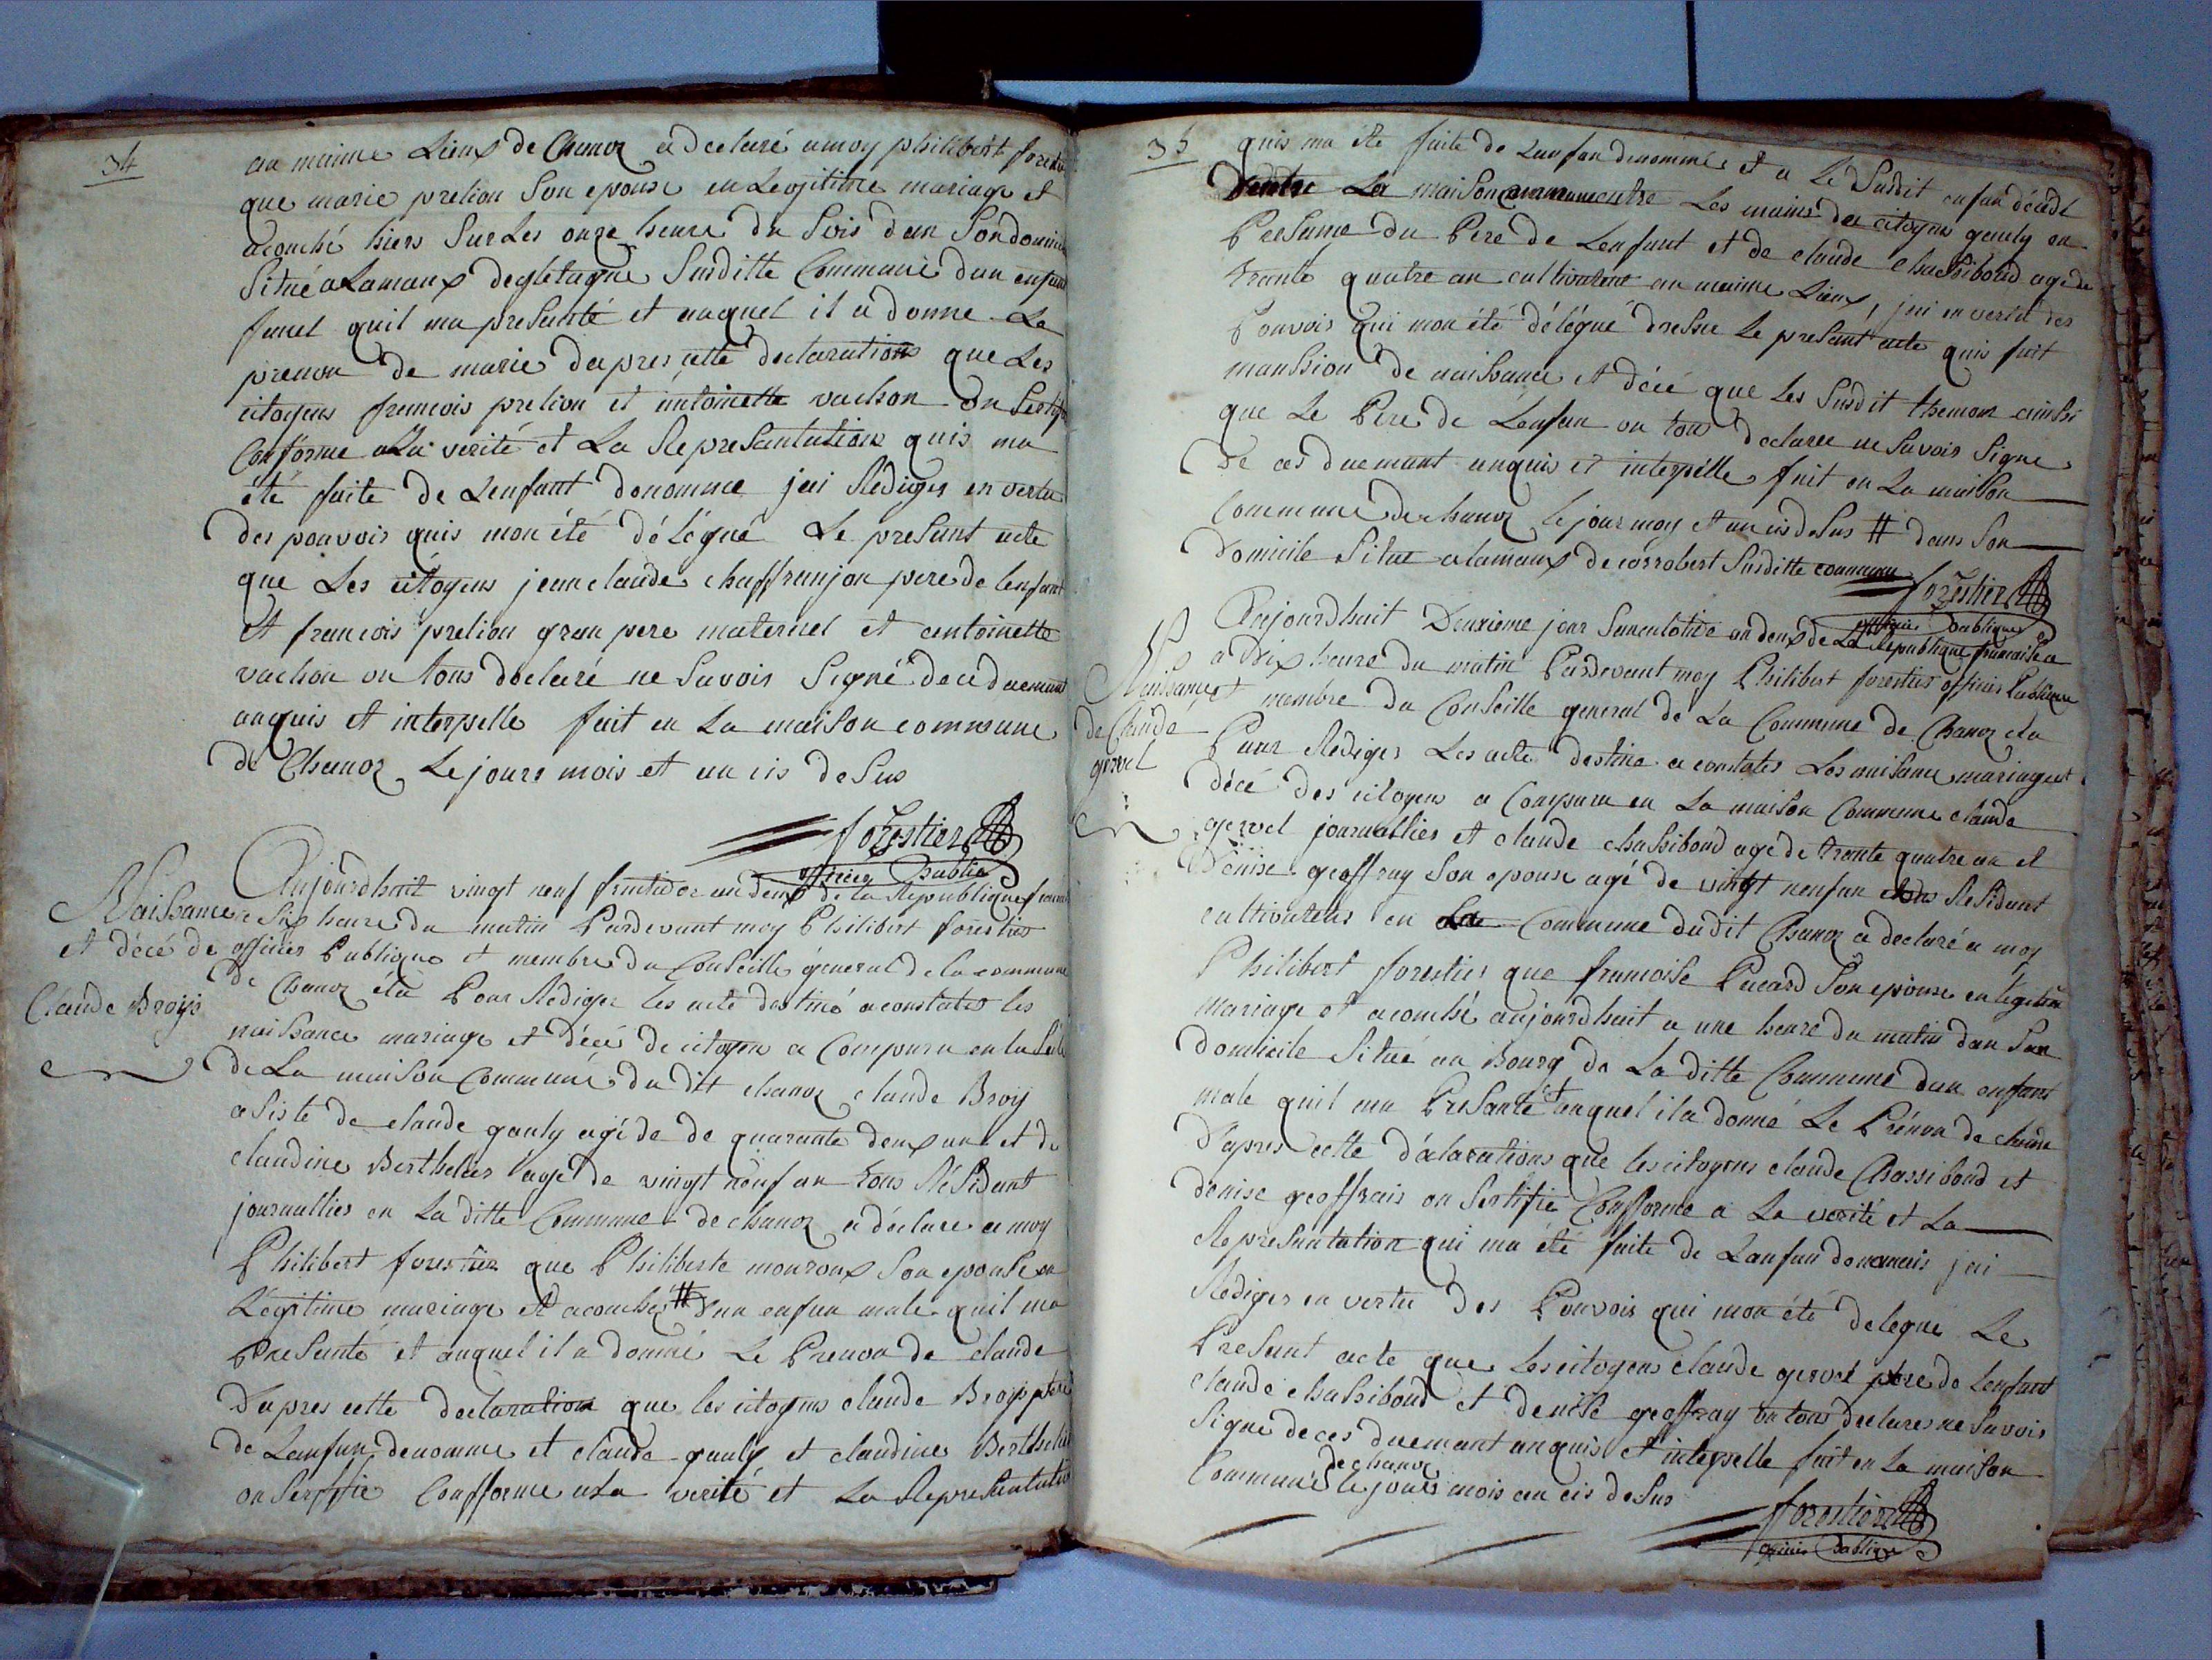 34
au meime Lieux de Chanoz a declaré a moy philibert forestie
que marie prelion Son epouse en Legitime mariage et
acouché hiers Sur Les onze heure du Soir dan Son domicile
Situé a Lamaux de gletagne Susditte Commune dun enfant
femel quil ma presanté et auquel il a donne Le
prenon de marie dapres cette declarations que Les
citoyens francois prelion et antoinette vachon on Sertifie
Conforme a La verité et La Represantation quis ma
été faite de Lenfant denomme jai Rédiger en vertu
des pouvois quis mon été délégué Le presant acte
que Les citoyens jean claude chaffranjon pere de lenfant
et francois prelion gran pere maternel et antoinette
vachon on tous declaré ne Savoir Signé de ce duemant
anquis et interpelle fait en La maison commune
de Chanoz Le jours mois et an cis desus
forestier
officier Public
Naissance
et décé de
Claude Broys
Aujourdhuit vingt neuf fructidor an deux de la Republique francaise
a Six heure du matin Pardevant moy Philibert forestier
officier Publique et membre du Conseille géneral de la commune
de Chanoz élu Pour Rediger les acte destiné a constater les
naissance mariage et décé de citoyen a Comparu en la Salle
de La maison Commune du dit chanoz claude Broy
asiste de claude gauly agé de de quarante deux an et de
claudine Berthelier agé de vingt neuf an tous Résidant
journallier en La ditte Commune de chanoz a déclare a moy
Philibert forestier que Philiberte mouroux Son epouse en
Légitime mariage et acouché # dun enfan male quil ma
Presanté et auquel il a donné Le Prenon de claude
Dapres cette declaration que les citoyens claude Broys pere
de Lanfan denomme et claude gauly et claudine Berthelier
on Sertifie Confforme a La verité et La Represantation
35
quis ma été faite de Lanfan denommé et a Le Susdit enfan décédé
dentre La maison entre Les mains des citoyens gauly en
Presance du Pere de Lenfant et de claude Chassiboud agé de
trante quatre an cultivateur au meime Lieux, jai en vertu des
Pouvois qui mon été délégué dresse Le presant acte quis fait
manssion de naissance et décé que Les Susdit themoin ainssi
que Le Pere de Lenfan on tous declaree ne Savoir Signe
de ces duemant anquis et interpelle fait en La maison
Commune de chanoz le jour moy et an cis desus # dans Son
Domicile Situe a lamaux de corrobert Susditte commune
forestier
officier Publique
Naissance
de Claude
gervel
Aujourdhuit Deuxieme jour Sanculotide an deux de La Republique francaise
a Dix heure du matin Pardevant moy Philibert forestier officier Publique
et membre du Conseille general de La Commune de Chanoz elu
Pour Rediger Les acte destine a constater Les naisance mariage et
décé des citoyens a Comparu en La maison Commune claude
gervel journallier et claude chassiboud agé de trante quatre an et
Denise geoffray Son epouse agé de vingt neuf an tous Residant
cultivateur en Commune dudit Chanoz a declaré a moy
Philibert forestier que francoise Pacard Son epouse en legitime
Mariage et acouché aujourdhuit a une heure du matin dan Son
domicile Situé au Bourg de La ditte Commune dun enffant
male quil ma Presanté et auquel il a donné Le Prénon de claude
Dapres cette déclarations que les citoyens claude Chassiboud et
denise geoffrais on Sertifie Confforme a La verité et La
Represantation qui ma été faite de Lanfan denommés jai
Rediger en vertu des Pouvoir qui mon été delegue Le
Presant acte que Les citoyens claude gervel pere de Lenfant
claude chassiboud et denise geoffray on tous declares ne Savoir
Signe de ces duemant anquis et interpelle fait en La maison
Commune de chanoz le jours mois an cis desus
forestier
officier Publique